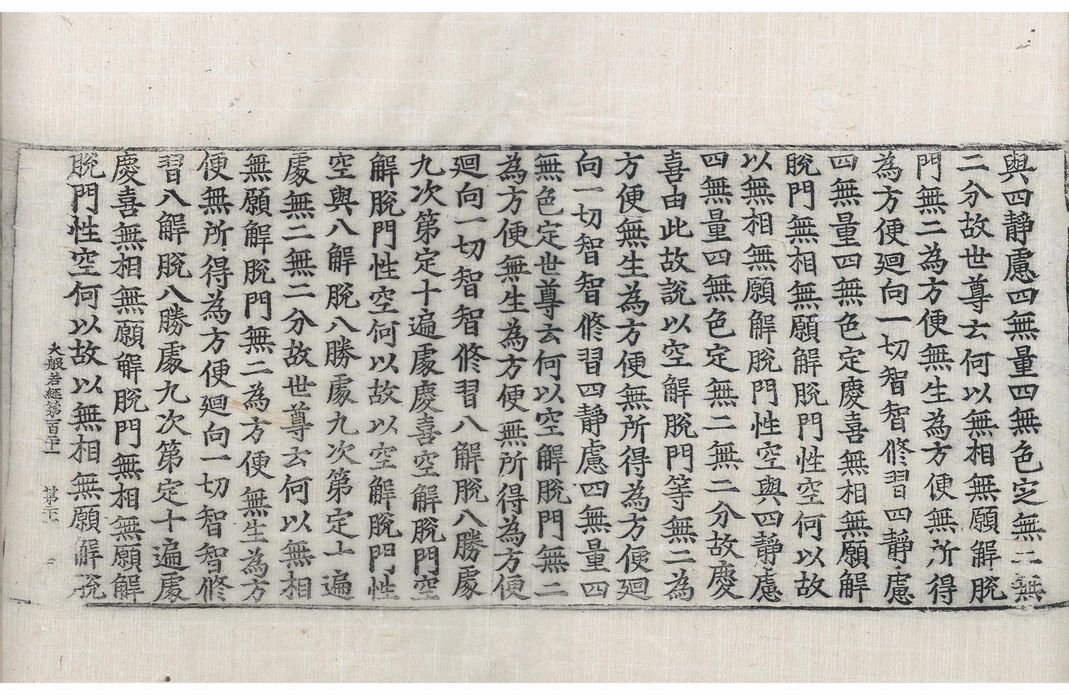 與四靜慮四無量四無色定無二無
二分故世尊云何以無相無願解脫
門無二為方便無生為方便無所得
為方便廻向一切智智修習四靜慮
四無量四無色定慶喜無相無願解
脫門無相無願解脫門性空何以故
以無相無願解脫門性空與四靜慮
四無量四無色定無二無二分故慶
喜由此故說以空解脫門等無二為
方便無生為方便無所得為方便廻
向一切智智修習四靜慮四無量四
無色定世尊云何以空解脫門無二
為方便無生為方便無所得為方便
廻向一切智智修習八解脫八勝處
九次第定十遍處慶喜空解脫門空
解脫門性空何以故以空解脫門性
空與八解脫八勝處九次第定上遍
處無二無二分故世尊云何以無相
無願解脫門無二為方便無生為方
便無所得為方便廻向一切智智修
習八解脫八勝處九次第定十遍處
慶喜無相無願解脫門無相無願解
脫門性空何以故以無相無願解脫
大般若經第百